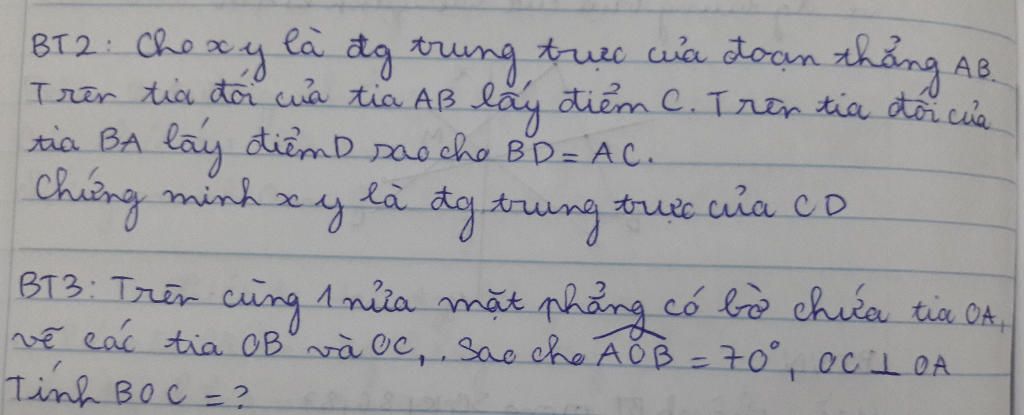 BT2: Cho xy là đg trung trực của đoạn thẳng AB.
Trên tia đối của tia AB lấy điểm C. Trên tia đối của
tia BA lấy điểm D sao cho BD = AC.
Chứng minh xy là đg trung trực của CD
BT3: Trên cùng 1 nửa mặt phẳng có bờ chứa tia OA,
vẽ các tia OB và OC, sao cho AOB = 70°, OC ⊥ OA
Tính BOC = ?